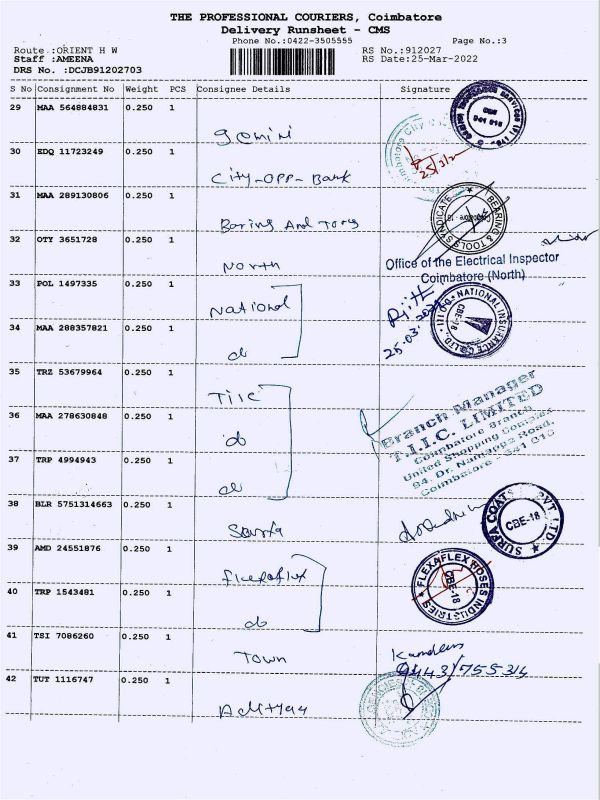 THE PROFESSIONAL COURIERS, Coimbatore
Delivery Runsheet - CMS
Phone No.:0422-3505555
Page No.:3
Route :ORIENT H W
RS No.:912027
Staff :AMEENA
RS Date:25-Mar-2022
DRS No. :DCJB91202703
S No Consignment No Weight PCS Consignee Details Signature
29 MAA 564884831 0.250 1
Gemini
30 EDQ 11723249 0.250 1
25/3/2
City-opp-Bank
31 MAA 289130806 0.250 1
BEARING & TOOLS SYNDICATE
Boring And Tools
32 OTY 3651728 0.250 1
North
Office of the Electrical Inspector
Coimbatore (North)
33 POL 1497335 0.250 1
National
NATIONAL INSURANCE CO. LTD.
CBE-18
34 MAA 288357821 0.250 1
do
25.03.2022
35 TRZ 53679964 0.250 1
TIIC
Branch Manager
T.I.I.C. LIMITED
Coimbatore Branch
United Shopping Complex
94, Dr. Nanjappa Road,
Coimbatore - 641 018
36 MAA 278630848 0.250 1
do
37 TRP 4994943 0.250 1
do
38 BLR 5751314663 0.250 1
Surfa
SURFA COATS PVT. LTD.
CBE-18
39 AMD 24551876 0.250 1
Flexaflex
FLEXAFLEX HOSES INDUSTRIES
CBE-18
40 TRP 1543481 0.250 1
do
41 TSI 7086260 0.250 1
Town
9443175534
42 TUT 1116747 0.250 1
Adityaa